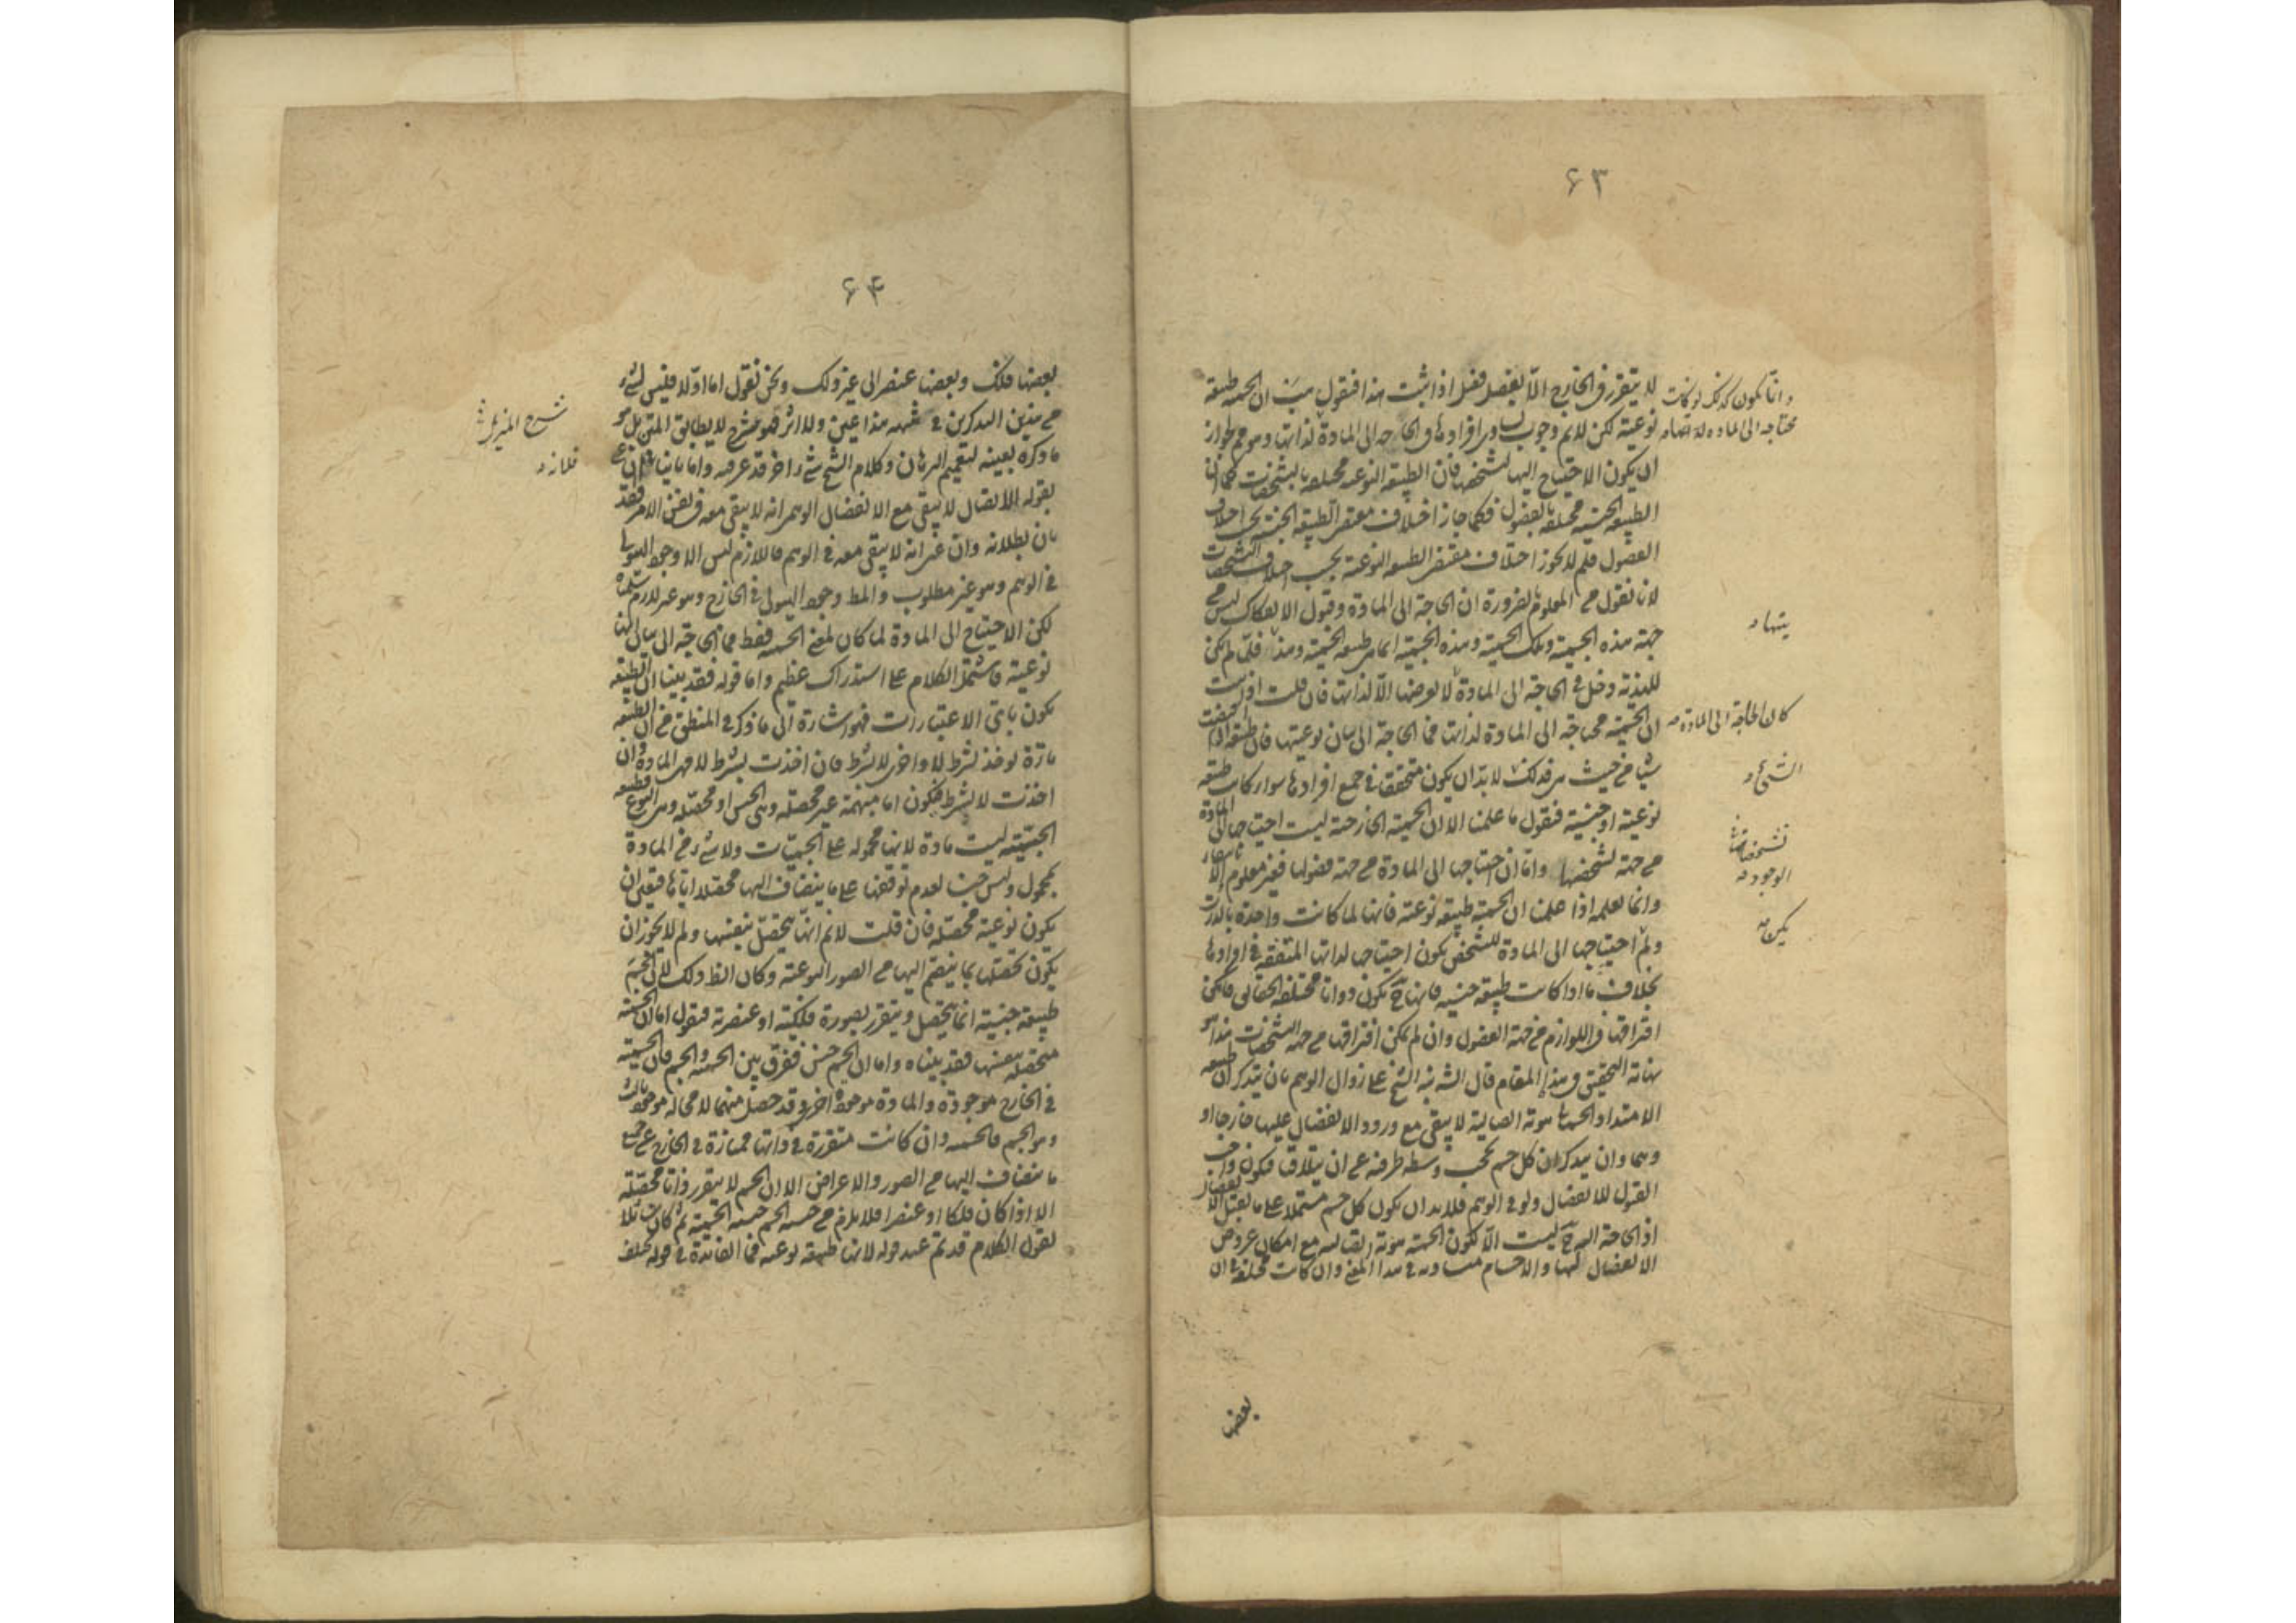 ٦٣
لا يتقرر فى الخارج الا بفصل فصل اذا ثبت هذا فنقول هب ان الجسمية طبيعة
نوعية لكن لانم وجوب تساوى افرادها فى الحاجة الى المادة لذاتها وهو مم لجواز
ان يكون الاحتياج اليها لتشخصها فان الطبيعة النوعية مختلفة بالتشخصات كما ان
الطبيعة الجنسية مختلفة بالفصول فكما جاز اختلاف مقتضى الطبيعة الجنسية بحسب اختلاف
الفصول فلم لا يجوز اختلاف مقتضى الطبيعة النوعية بحسب اختلاف التشخصات
لانا نقول من المعلوم بالضرورة ان الحاجة الى المادة وقبول الانفكاك ليس من
جهة هذه الجسمية وتلك الجسمية وهذه الجسمية انما هى طبيعة الجسمية وهذا فلما لم يكن
للهذية دخل فى الحاجة الى المادة لا يعرضها الا لذاتها فان قلت اذا ثبت
ان الجسمية محتاجة الى المادة لذاتها فما الحاجة الى بيان نوعيتها فان طبيعة
من حيث هى فذلك لابد ان يكون متحققا فى جميع افرادها سواء كانت طبيعة
نوعية او جنسية فنقول ما علمنا الا ان الجسمية الخارجية ليست احتياجها الى المادة
من جهة تشخصها واما ان احتياجها الى المادة من جهة فصولها فغير معلوم
وانما نعلمه اذا علمنا ان الجسمية طبيعة نوعية فانها لما كانت واحدة بالذات
ولم احتياجها الى المادة للتشخص يكون احتياجها لذاتها المتفقة فى افرادها
بخلاف ما اذا كانت طبيعة جنسية فانها ح تكون ذواتا مختلفة الحقائق فامكن
افتراقها فى اللوازم من جهة الفصول وان لم يمكن افتراقها من جهة التشخصات هذا هو
نهاية التحقيق فى هذا المقام قال الش نبه الشيخ على زوال الوهم بان يتذكر ان طبيعة
الامتداد الجسمانى هوية اتصالية لا يبقى مع ورود الانفصال عليها خارجا او
وهما وان يتذكر ان كل جسم يحجب وسطه طرفيه عن ان يتلاقيا فيكون واجب
القبول للانفصال ولو فى الوهم فلابد ان يكون كل جسم مشتملا على ما يقبل الانفصال
اذ الحاجة اليه ح ليست الا لكون الجسمية هوية اتصالية مع امكان عروض
الانفصال لها والاجسام متساوية فى هذا المعنى وان كانت مختلفة فى ان
وانما يكون كذلك لو كانت
محتاجة الى المادة
كان الحاجة الى المادة
الشىء
تشخصاتها
الوجود
يكن
بعضها
٦٤
بعضها فلك وبعضها عنصر الى غير ذلك ونحن نقول اما اولا فليس لشىء
من هذين التذكرين فى شبهه هذا عين ولا اثر فهو شرح لا يطابق المتن بل هو
ما ذكره بعينه لتعميم البرهان وكلام الشيخ شىء آخر قد عرفه واما ثانيا
بقوله الاتصال لا يبقى مع الانفصال الوهمى انه لا يبقى معه فى نفس الامر فقد
بان بطلانه وان عنى انه لا يبقى معه فى الوهم فاللازم ليس الا وجود الهيولى
فى الوهم وهو غير مطلوب والمط وجود الهيولى فى الخارج وهو غير لازم سلمناه
لكن الاحتياج الى المادة لما كان لمعنى الجسمية فقط فما الحاجة الى بيان انها
نوعية فاشتمل الكلام على استدراك عظيم واما قوله فقد بينا ان الطبيعة
تكون باى الاعتبارات فهو اشارة الى ما ذكر فى المنطق من ان الطبيعة
تارة تؤخذ بشرط لا واخرى لا بشرط فان اخذت بشرط لا فهى المادة وان
اخذت لا بشرط فتكون اما مبهمة غير محصلة وهى الجنس او محصلة وهى النوع
الجسمية ليست مادة لانها محمولة على الجسميات ولا شىء من المادة
بمحمول وليس جنسا لعدم توقفها على ما ينضاف اليها محصلا اياها فتعين ان
يكون نوعية محصلة فان قلت لانم انها تتحصل بنفسها ولم لا يجوز ان
يكون تحصلها بما ينضم اليها من الصور النوعية وكان الظ ذلك لان الجسم
طبيعة جنسية انما يتحصل ويتقرر بصورة فلكية او عنصرية فنقول اما ان الجسمية
متحصلة بنفسها فقد بيناه واما ان الجسم جنس ففرق بين الجسمية والجسم فان الجسمية
فى الخارج موجودة والمادة موجود آخر وقد حصل منهما لا محالة موجود ثالث
وهو الجسم فالجسمية وان كانت متقررة فى ذاتها ممتازة فى الخارج عن جميع
ما ينضاف اليها من الصور والاعراض الا ان الجسم لا يتقرر ذاتا محصلة
الا اذا كان فلكا او عنصرا فلا يلزم من جنسية الجسم جنسية الجسمية ثم كان قائلا
يقول الكلام قد تم عند قوله لانها طبيعة نوعية فما الفائدة فى قوله تختلف
شرح
فلانه